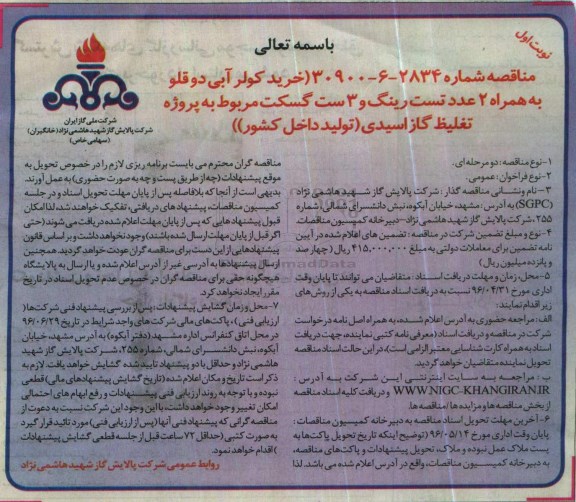 باسمه تعالی
نوبت اول
مناقصه شماره ۲۸۳۴-۶-۳۰۹۰۰ (خرید کولر آبی دو قلو
به همراه ۲ عدد تست رینگ و ۳ ست گسکت مربوط به پروژه
تغلیظ گاز اسیدی (تولید داخل کشور))
شرکت ملی گاز ایران
شرکت پالایش گاز شهید هاشمی نژاد (خانگیران)
(سهامی خاص)
۱-نوع مناقصه: دو مرحله ای.
۲-نوع فراخوان: عمومی.
۳-نام ونشانی مناقصه گذار: شرکت پالایش گاز شهید هاشمی نژاد
(SGPC) به آدرس: مشهد، خیابان آبکوه، نبش دانشسرای شمالی، شماره
۲۵۵، شرکت پالایش گاز شهید هاشمی نژاد-دبیرخانه کمیسیون مناقصات.
۴-نوع و مبلغ تضمین شرکت در مناقصه: تضمین های اعلام شده در آیین
نامه تضمین برای معاملات دولتی به مبلغ ۴۱۵,۰۰۰,۰۰۰ ریال (چهار صد
و پانزده میلیون ریال)
۵-محل، زمان و مهلت دریافت اسناد: متقاضیان می توانند تا پایان وقت
اداری مورخ ۹۶/۰۴/۳۱ نسبت به دریافت اسناد مناقصه به یکی از روش های
زیر اقدام نمایند:
الف: مراجعه حضوری به آدرس اعلام شده، به همراه اصل نامه درخواست
شرکت در مناقصه و دریافت اسناد (معرفی نامه کتبی نماینده، جهت دریافت
اسناد به همراه کارت شناسایی معتبر الزامی است)، در این حالت اسناد مناقصه
تحویل نماینده متقاضیان خواهد گردید.
ب: مراجعه به سایت اینترنتی این شرکت به آدرس:
WWW.NIGC-KHANGIRAN.IR و دریافت کلیه اسناد مناقصه
از بخش مناقصه ها و مزایده ها / مناقصه ها.
۶-آخرین مهلت تحویل اسناد مناقصه به دبیرخانه کمیسیون مناقصات:
پایان وقت اداری مورخ ۹۶/۰۵/۱۴ (توضیح اینکه تاریخ تحویل پاکت ها به
پست ملاک عمل نبوده و ملاک، تحویل پیشنهادات و پاکت های مناقصه،
به دبیرخانه کمیسیون مناقصات، واقع در آدرس اعلام شده می باشد. لذا
مناقصه گران محترم می بایست برنامه ریزی لازم را در خصوص تحویل به
موقع پیشنهادات (چه از طریق پست و چه به صورت حضوری) به عمل آورند.
بدیهی است از آنجا که بلافاصله پس از پایان مهلت تحویل اسناد و در جلسه
کمیسیون مناقصات، پیشنهاد های دریافتی، تفکیک خواهند شد، لذا امکان
قبول پیشنهاد هایی که پس از پایان مهلت اعلام شده دریافت می شوند (حتی
اگر قبل از پایان مهلت ارسال شده باشند) وجود نخواهد داشت و بر اساس قانون
پیشنهادهایی از این دست برای مناقصه گران عودت خواهد گردید. همچنین
ارسال پیشنهادها به آدرسی غیر از آدرس اعلام شده و یا ارسال به پالایشگاه
هیچگونه حقی برای مناقصه گران در خصوص عدم تحویل اسناد در تاریخ
مقرر ایجاد نخواهد کرد.
۷-محل و زمان گشایش پیشنهادات: پس از بررسی پیشنهاد فنی شرکت ها (
ارزیابی فنی)، پاکت های مالی شرکت های واجد شرایط در تاریخ ۹۶/۰۶/۲۹
در محل اتاق کنفرانس اداره مشهد (دفتر آبکوه) به آدرس مشهد، خیابان
آبکوه، نبش دانشسرای شمالی، شماره ۲۵۵، شرکت پالایش گاز شهید
هاشمی نژاد و حداقل با دو پیشنهاد تایید شده گشایش خواهد یافت. لازم به
ذکر است تاریخ و مکان اعلام شده (تاریخ گشایش پیشنهادهای مالی) قطعی
نبوده و با توجه به روند ارزیابی فنی پیشنهادات و رفع ابهام های احتمالی
امکان تغییر وجود خواهد داشت، با این وجود این شرکت نسبت به دعوت از
مناقصه گرانی که پیشنهاد فنی آنها (پس از ارزیابی فنی) مورد تائید قرار گیرد
به صورت کتبی (حداقل ۷۲ ساعت قبل از جلسه قطعی گشایش پیشنهادات
) اقدام خواهد نمود.
روابط عمومی شرکت پالایش گاز شهید هاشمی نژاد